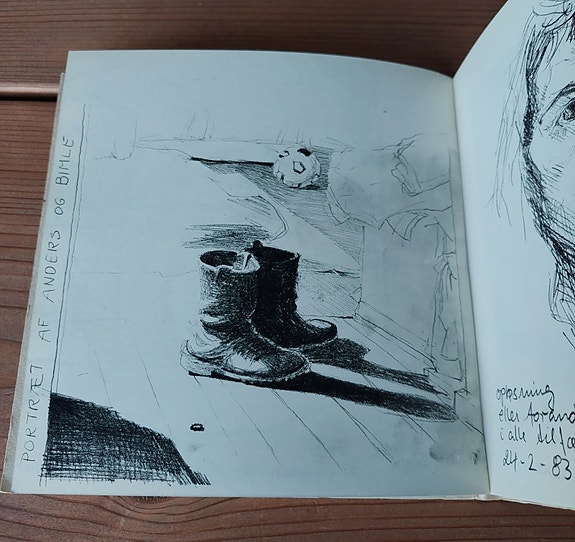 PORTRÆT AF ANDERS OG BIMLE
opløsning
eller forand
i alle tilfæ
24-2-83